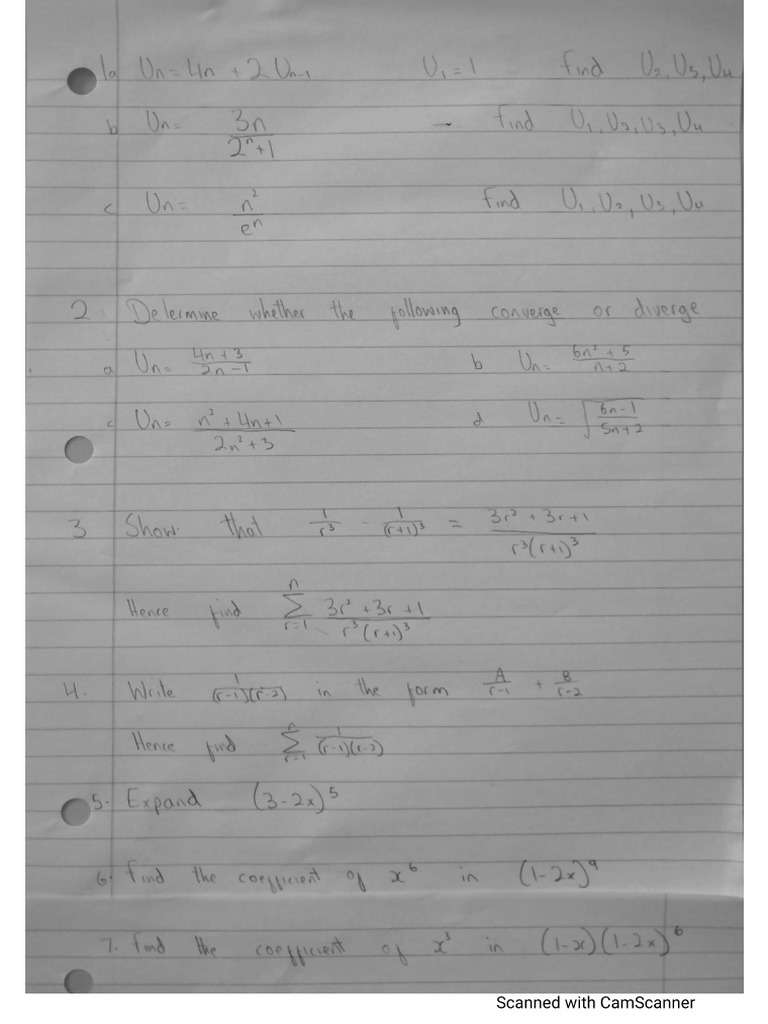 1a Un = 4n + 2Un-1 U1 = 1 find U2, U3, U4
b Un = 3n/(2^n + 1) - find U1, U2, U3, U4
c Un = n²/e^n find U1, U2, U3, U4
2 Determine whether the following converge or diverge
a Un = (4n + 3)/(2n - 1) b Un = (6n² + 5)/(n + 2)
c Un = (n² + 4n + 1)/(2n² + 3) d Un = √((6n - 1)/(5n + 2))
3 Show that 1/r³ - 1/(r+1)³ = (3r² + 3r + 1)/(r³(r+1)³)
Hence find Σ r=1 n (3r² + 3r + 1)/(r³(r+1)³)
4. Write 1/((r-1)(r-2)) in the form A/(r-1) + B/(r-2)
Hence find Σ r=1 n 1/((r-1)(r-2))
5. Expand (3-2x)^5
6. find the coefficient of x^6 in (1-2x)^9
7. find the coefficient of x³ in (1-x)(1-2x)^6
Scanned with CamScanner